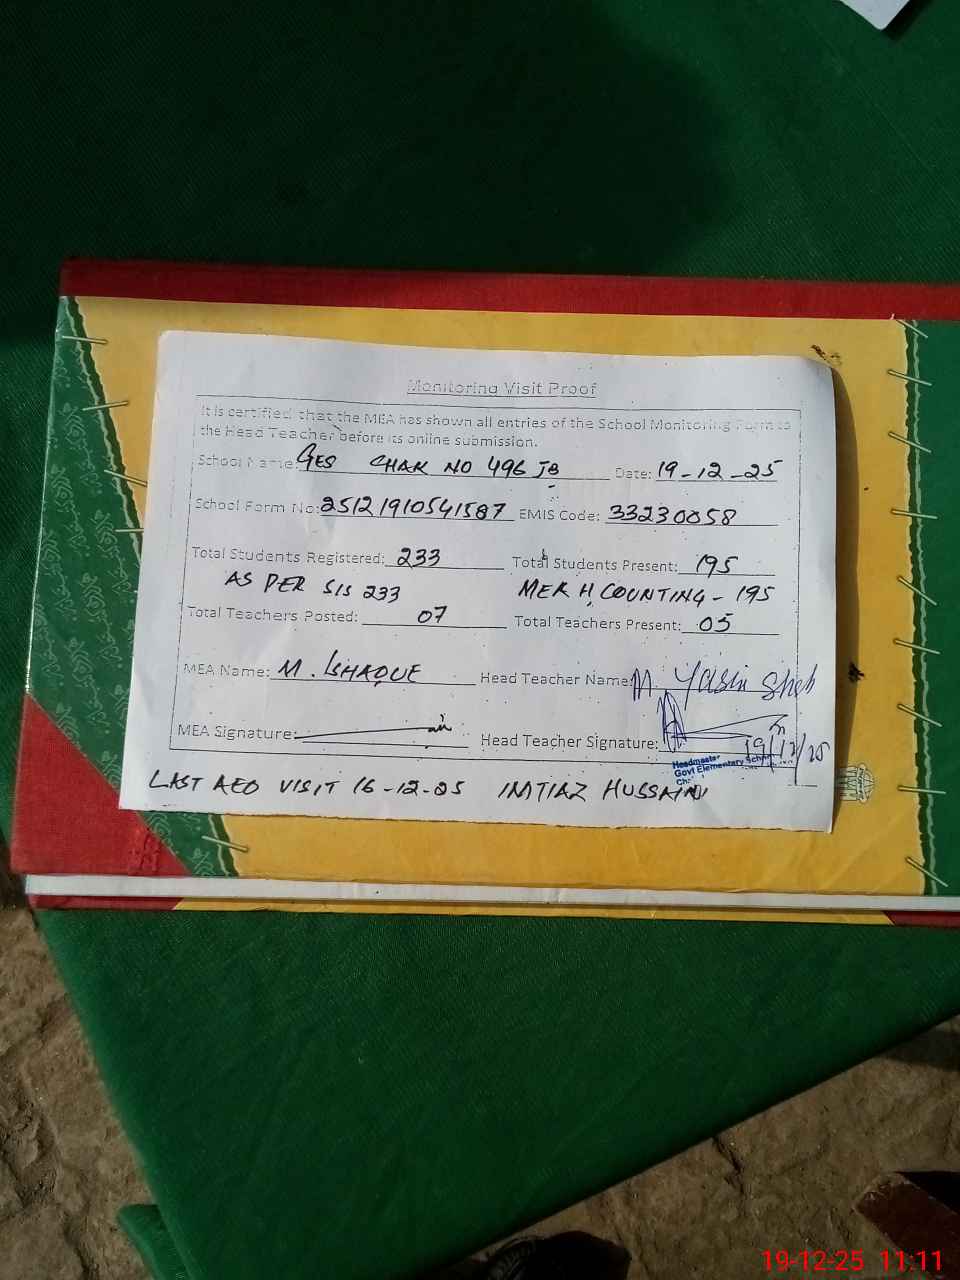 Monitoring Visit Proof
It is certified that the MEA has shown all entries of the School Monitoring Form to
the Head Teacher before its online submission.
School Name: GES CHAK NO 496 JB Date: 19-12-25
School Form No: 25121910541587 EMIS Code: 33230058
Total Students Registered: 233 Total Students Present: 195
AS PER SIS 233 MEA H, COUNTING - 195
Total Teachers Posted: 07 Total Teachers Present: 05
MEA Name: M. ISHAQUE Head Teacher Name: M. Yasin Shah
MEA Signature: Head Teacher Signature:
19/12/25
Headmaster
Govt Elementary School
LAST AEO VISIT 16-12-25 IMTIAZ HUSSAIN
19-12-25 11:11